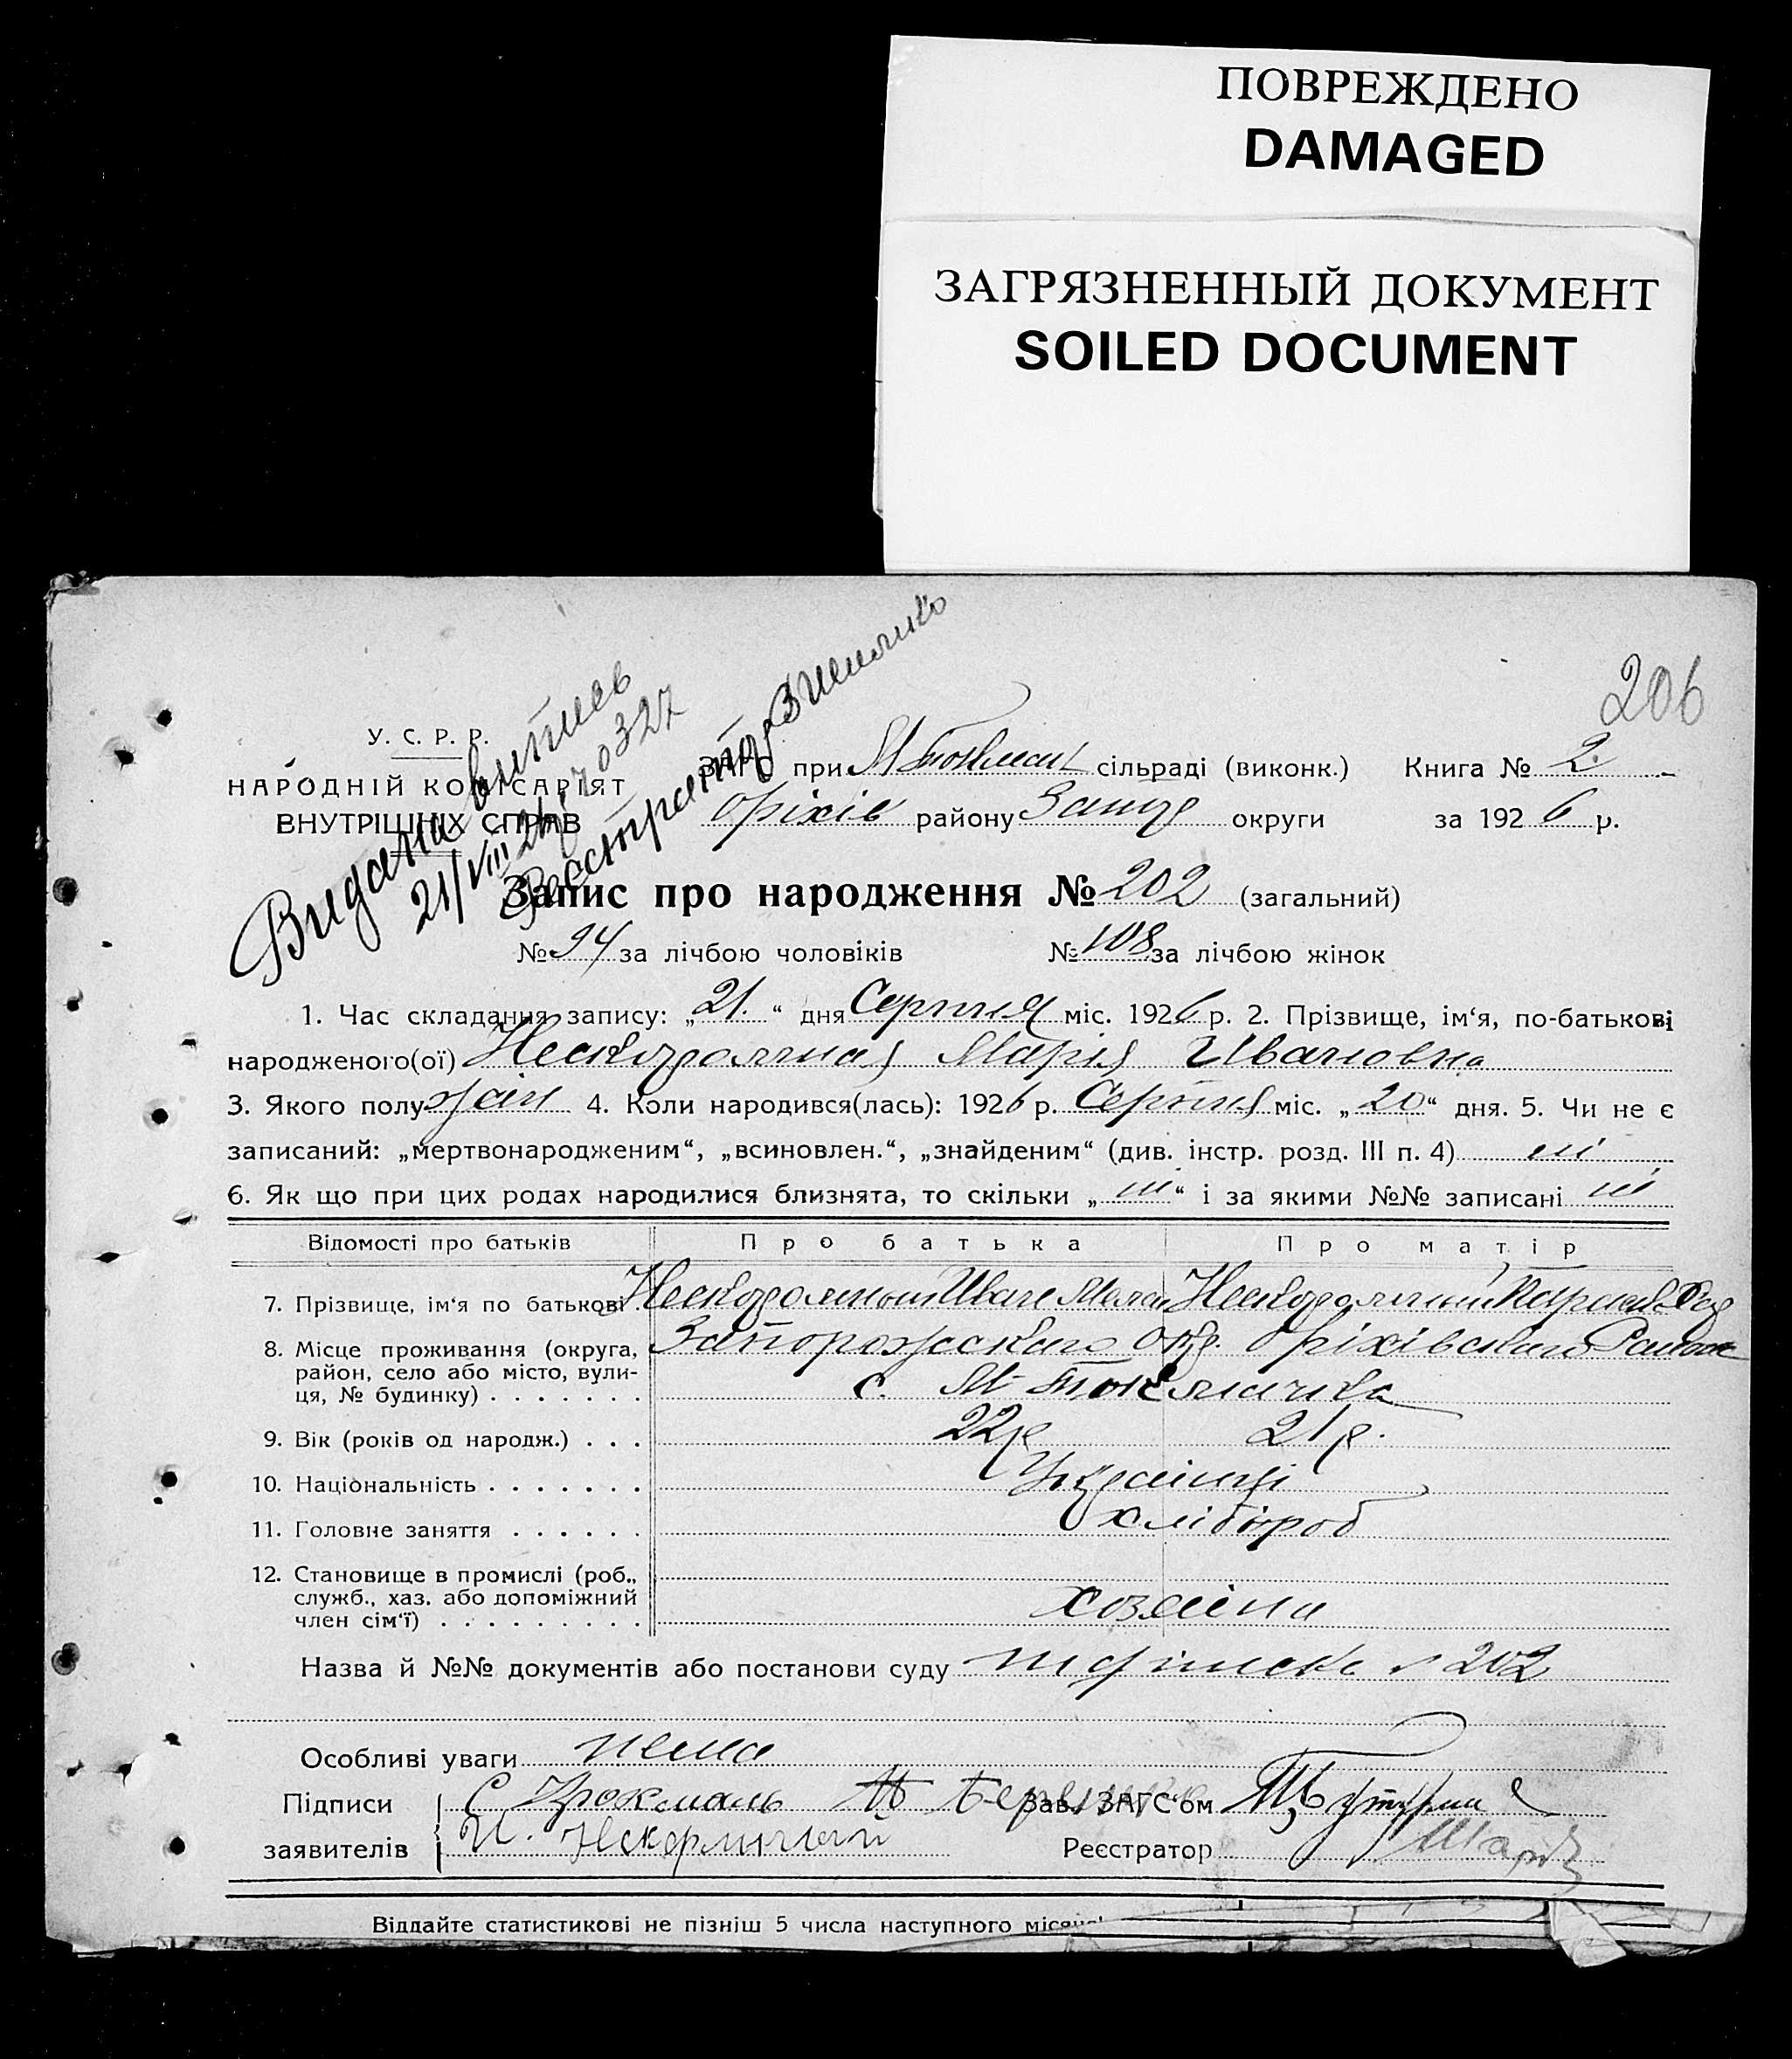 ПОВРЕЖДЕНО
DAMAGED
ЗАГРЯЗНЕННЫЙ ДОКУМЕНТ
SOILED DOCUMENT
206
Видана витяг
21/VIII 26 р. 0327
У. С. Р. Р.
НАРОДНІЙ КОМІСАРІЯТ
ВНУТРІШНІХ СПРАВ
ЗАГС при М Токмац сільраді (виконк.) Книга № 2.
Оріхів району Запор округи за 1926 р.
Запис про народження № 202 (загальний)
№ 94 за лічбою чоловіків № 108 за лічбою жінок
1. Час складання запису: „21.“ дня Серпня міс. 1926 р. 2. Прізвище, ім‘я, по-батькові
народженого(ої) Марія Ивановна
3. Якого полу жін 4. Коли народився(лась): 1926 р. Серпня міс. „20“ дня. 5. Чи не є
записаний: „мертвонародженим“, „всиновлен.“, „знайденим“ (див. інстр. розд. III п. 4) ні
6. Як що при цих родах народилися близнята, то скільки „ні“ і за якими №№ записані ні
Відомості про батьків Про батька Про матір
7. Прізвище, ім‘я по батькові Иван
8. Місце проживання (округа, Запорожского Окр. Оріхівского Района
район, село або місто, вули-
ця, № будинку) . . . . . . . с. М-Токмачка
9. Вік (років од народж.) . . . 22р 21р.
10. Національність . . . . . . . Українці
11. Головне заняття . . . . . . хлібороб
12. Становище в промислі (роб.,
служб., хаз. або допоміжний
член сім‘ї) . . . . . . . . . хозяіни
Назва й №№ документів або постанови суду 202
Особливі уваги нема
Підписи Зав. ЗАГС‘ом
заявителів И. Реєстратор
Віддайте статистикові не пізніш 5 числа наступного